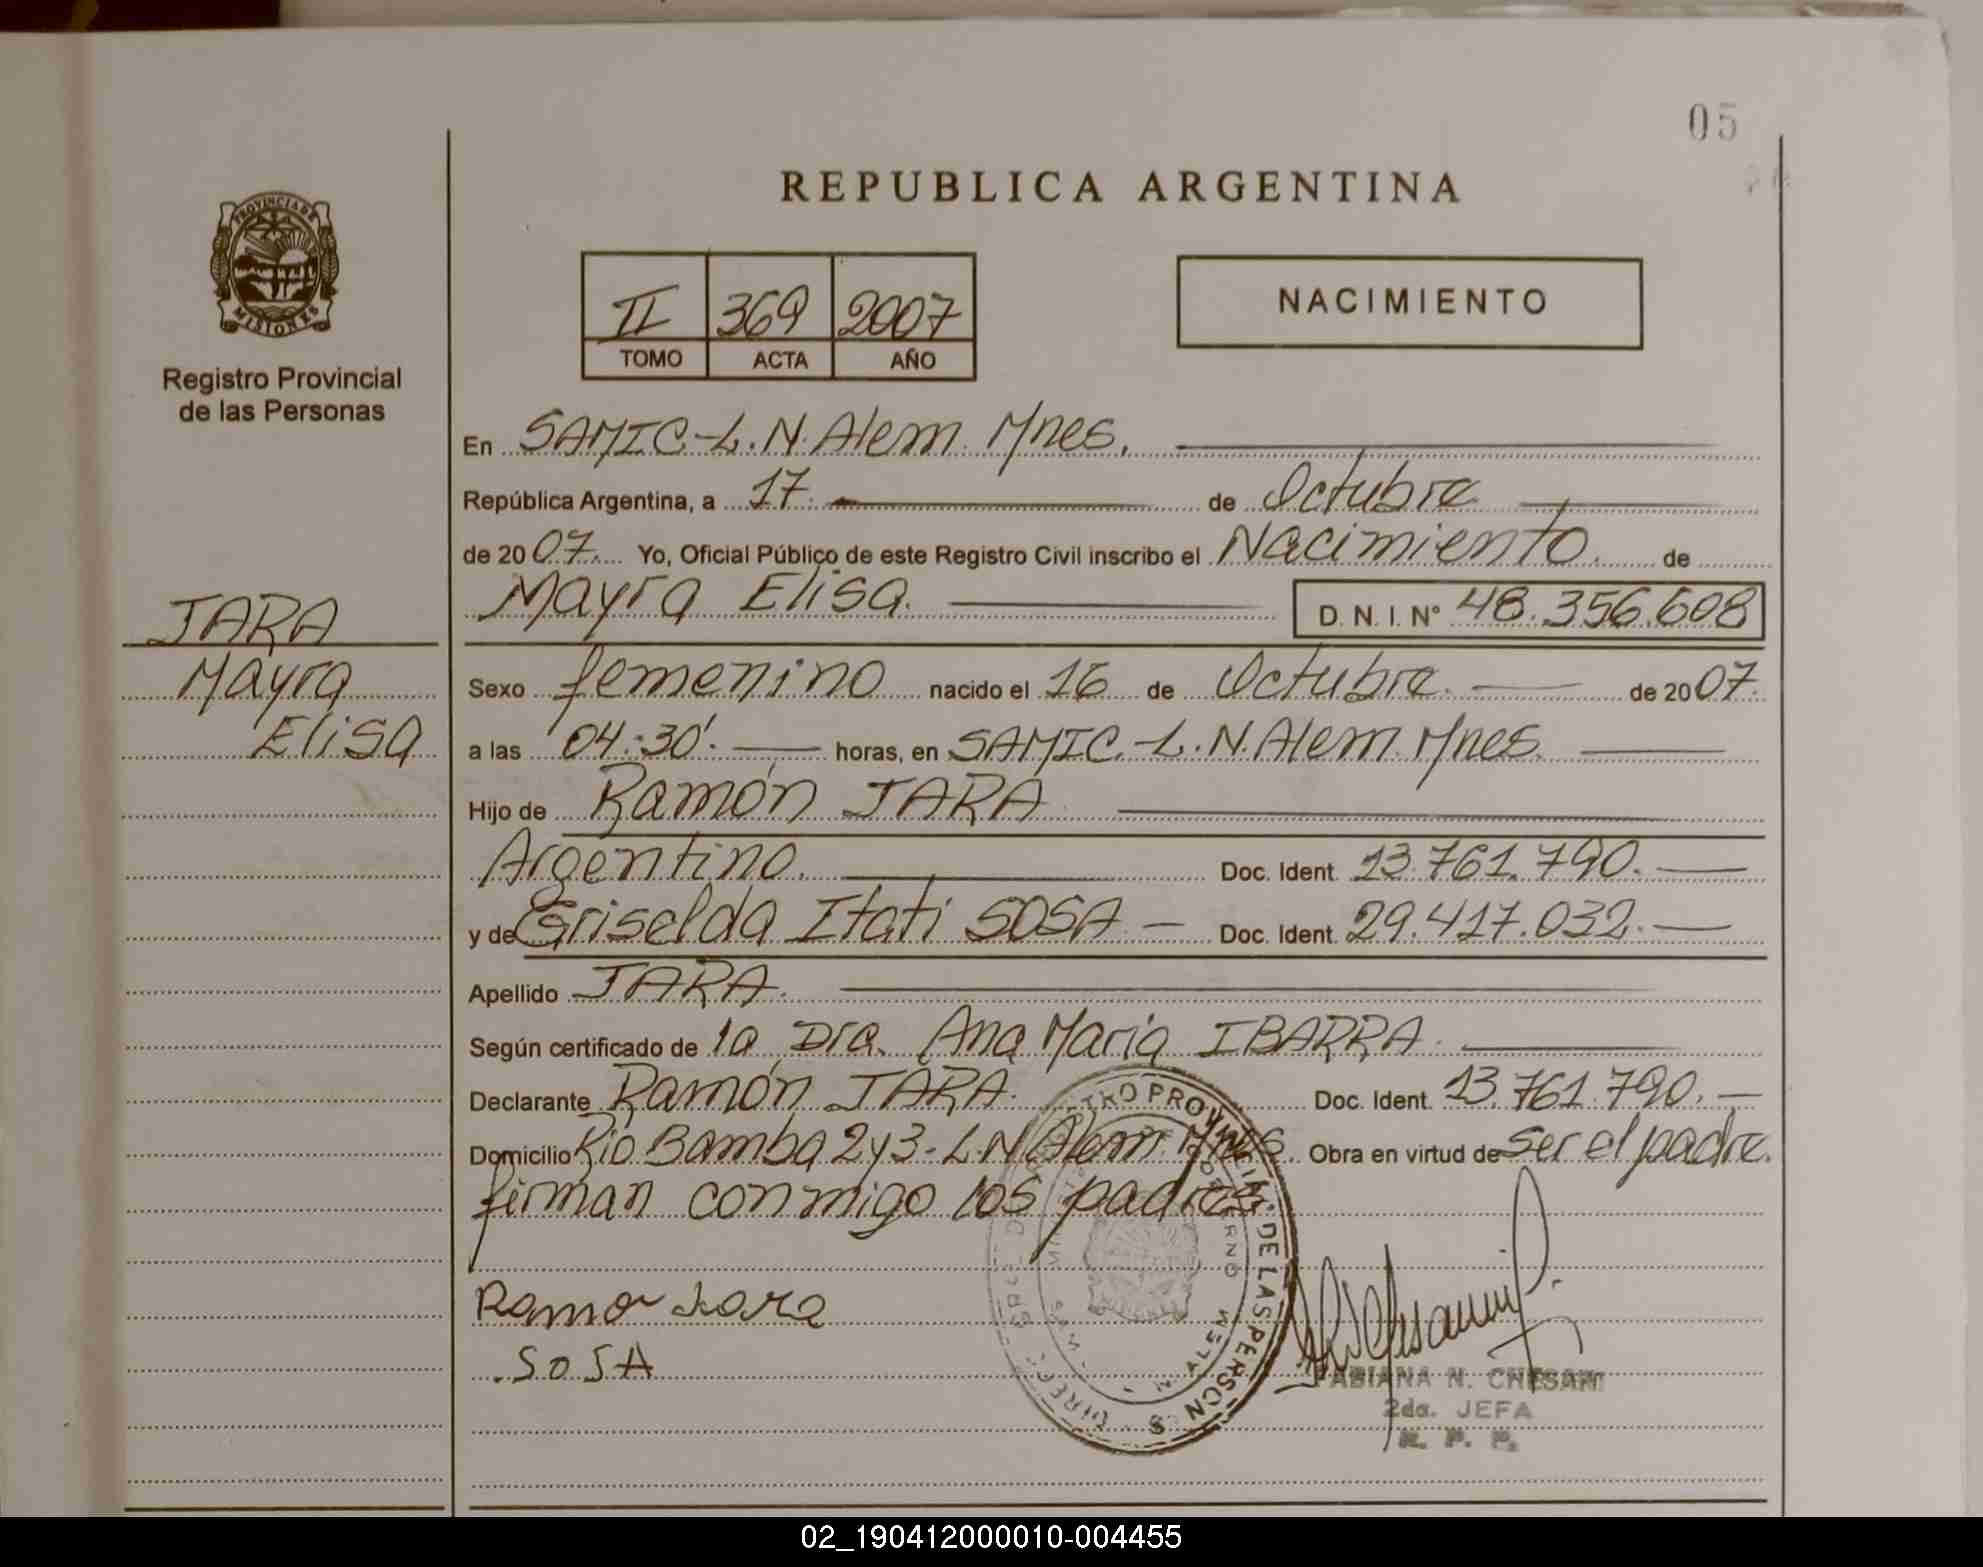 05
REPUBLICA ARGENTINA
PROVINCIA DE
MISIONES
Registro Provincial
de las Personas
II 369 2007
TOMO ACTA AÑO
NACIMIENTO
En SAMIC-L.N.Alem. Mnes.
República Argentina, a 17. de Octubre
de 2007. Yo, Oficial Público de este Registro Civil inscribo el Nacimiento. de
Mayra Elisa. D. N. I. Nº 48.356.608
JARA
Mayra
Elisa
Sexo femenino nacido el 16 de Octubre. de 2007.
a las 04:30'. horas, en SAMIC.-L.N.Alem. Mnes.
Hijo de Ramón JARA
Argentino. Doc. Ident. 13.761.790.
y de Griselda Itati SOSA - Doc. Ident. 29.417.032.
Apellido JARA.
Según certificado de la Dra. Ana Maria IBARRA.
Declarante Ramón JARA. Doc. Ident. 13.761.790.
Domicilio Rio Bamba 2y3-L.N.Alem. Mnes. Obra en virtud de ser el padre.
firman conmigo los padres
Ramon Jara
.SOSA
FABIANA N. CHESANI
2da. JEFA
R. P. P.
02_190412000010-004455